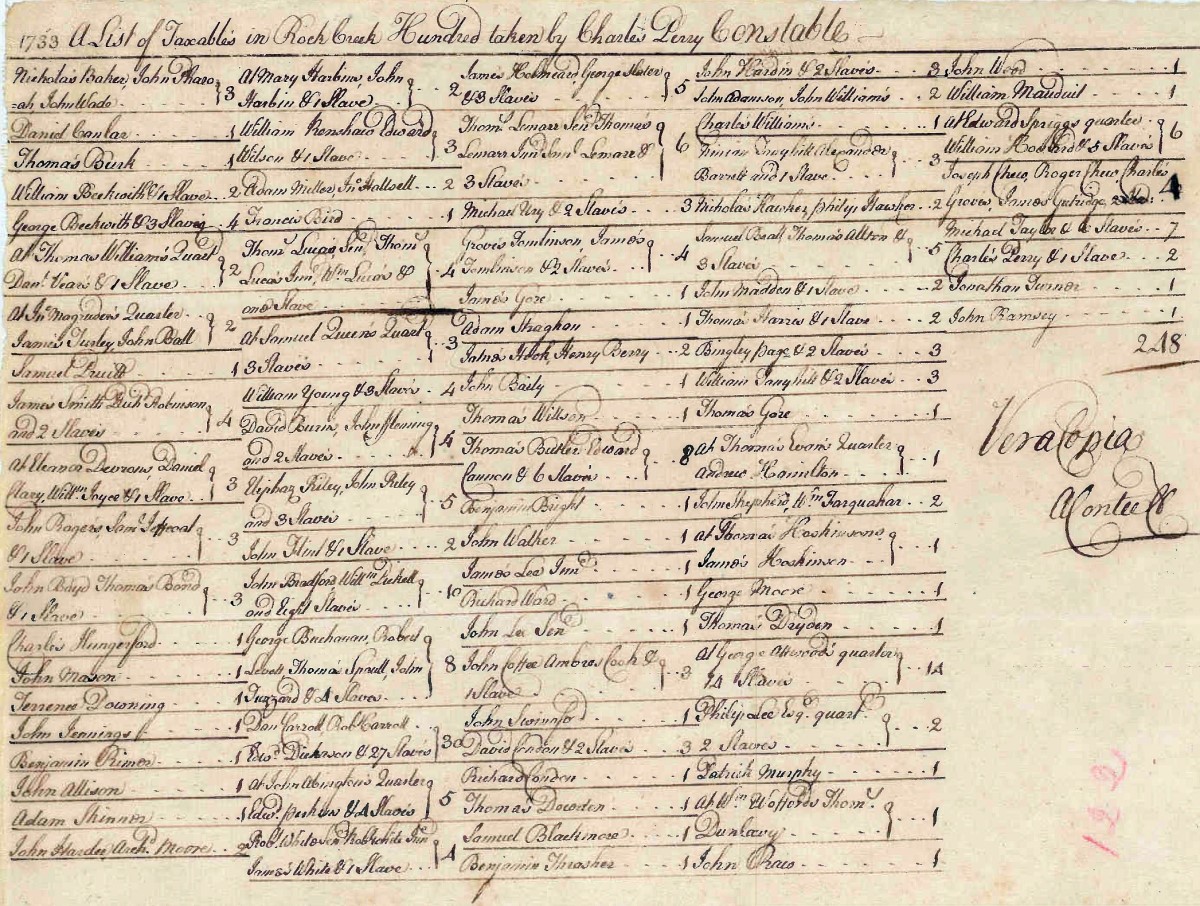 1733 A List of Taxables in Rock Creek Hundred taken by Charles Perry Constable
Nicholas Baker, John Pharo
=ah John Wade 3
Daniel Canlar 1
Thomas Burk 1
William Beckwith & 1 Slave 2
George Beckwith & 3 Slaves 4
At Thomas Williams's Quart.
Dan.l Vears & 1 Slave 2
At Jn.o Magruders Quarter
James Turley John Ball 2
Samuel Pruitt 1
James Smith Rich.d Robinson
and 2 Slaves 4
At Eleanor Devrons, Daniel
Clary Will.m Joyce & 1 Slave 3
John Rogers Sam.l
& 1 Slave 3
John Boyd Thomas Bond
& 1 Slave 3
Charles Hungerford 1
John Mason 1
Terrence Downing 1
John Jennings 1
Benjamin Primer 1
John Allison 1
Adam Skinner 1
John Harder, Arch.d Moore 2
At Mary Harbins, John
Harbin & 1 Slave 2
William Renshaw Edward
Wilson & 1 Slave 3
Adam Miller, Jn.o Hallsell 2
Francis Bird 1
Thom.s Lucas Sen.r Thom.s
Lucas Jun.r, W.m Lucas &
one Slave 4
At Samuel Queens Quart.
3 Slaves 3
William Young & 3 Slaves 4
David Burn, John Fleming
and 2 Slaves 4
Eliphaz Riley, John Riley
and 3 Slaves 5
John Flint & 1 Slave 2
John Bradford Will.m Lickell
and Eight Slaves 10
George Buchanan, Robert
Levett Thomas Spaull, John
& 4 Slaves 8
Dan Carroll Rob.t Carroll
Edw.d Dickerson & 27 Slaves 30
At John Abingtons Quarter
Edw.d Perkins & 4 Slaves 5
Rob.t White Sen.r Rob.t White Jun.r
James White & 1 Slave 4
James Holmeard George Slater
& 3 Slaves 5
Thom.s Lemarr Sen.r Thomas
Lemarr Jun.r Sam.l Lemarr &
3 Slaves 6
Michael Ury & 2 Slaves 3
Groves Tomlinson, James
Tomlinson & 2 Slaves 4
James Gore 1
Adam Straghan 1
James Hook Henry Berry 2
John Baily 1
Thomas Willson 1
Thomas Butler Edward
Cannon & 6 Slaves 8
Benjamin Bright 1
John Walker 1
James Lee Jun.r 1
Richard Ward 1
John Lee Sen.r 1
John Coffee Ambros Cook &
1 Slave 3
John Swinford 1
David Condon & 2 Slaves 3
Richard Condon 1
Thomas Dowden 1
Samuel Blackmore 1
Benjamin Thrasher 1
John Hardin & 2 Slaves 3
John Adamson, John Williams 2
Charles Williams
Ninian Tanyhill Alexander
Barrett and 1 Slave 3
Nicholas Hawker Philip Hawker 2
Samuel Beall Thomas Allson &
3 Slaves 5
John Madden & 1 Slave 2
Thomas Harris & 1 Slave 2
Bingley Page & 2 Slaves 3
William Tanyhill & 2 Slaves 3
Thomas Gore 1
At Thomas Evans Quarter
Andrew Hamilton 1
John Shepherd, W.m Farquahar 2
At Thomas Hoskinsons
James Hoskinson 1
George Moore 1
Thomas Dryden 1
At George Attwoods quarter
14 Slaves 14
Philip Lee Esq.r quart.
2 Slaves 2
Patrick Murphy 1
At W.m Woffords Thom.s
Dunlavy 1
John 1
John Wood 1
William Mauduit 1
At Edward Spriggs quarter
William Howard & 5 Slaves 6
Joseph Chew, Roger Chew, Charles
Groves, James Gutridge 4
Michael Taylor & 6 Slaves 7
Charles Perry & 1 Slave 2
Jonathan Turner 1
John Ramsey 1
248
Vera Copia
A Contee
122